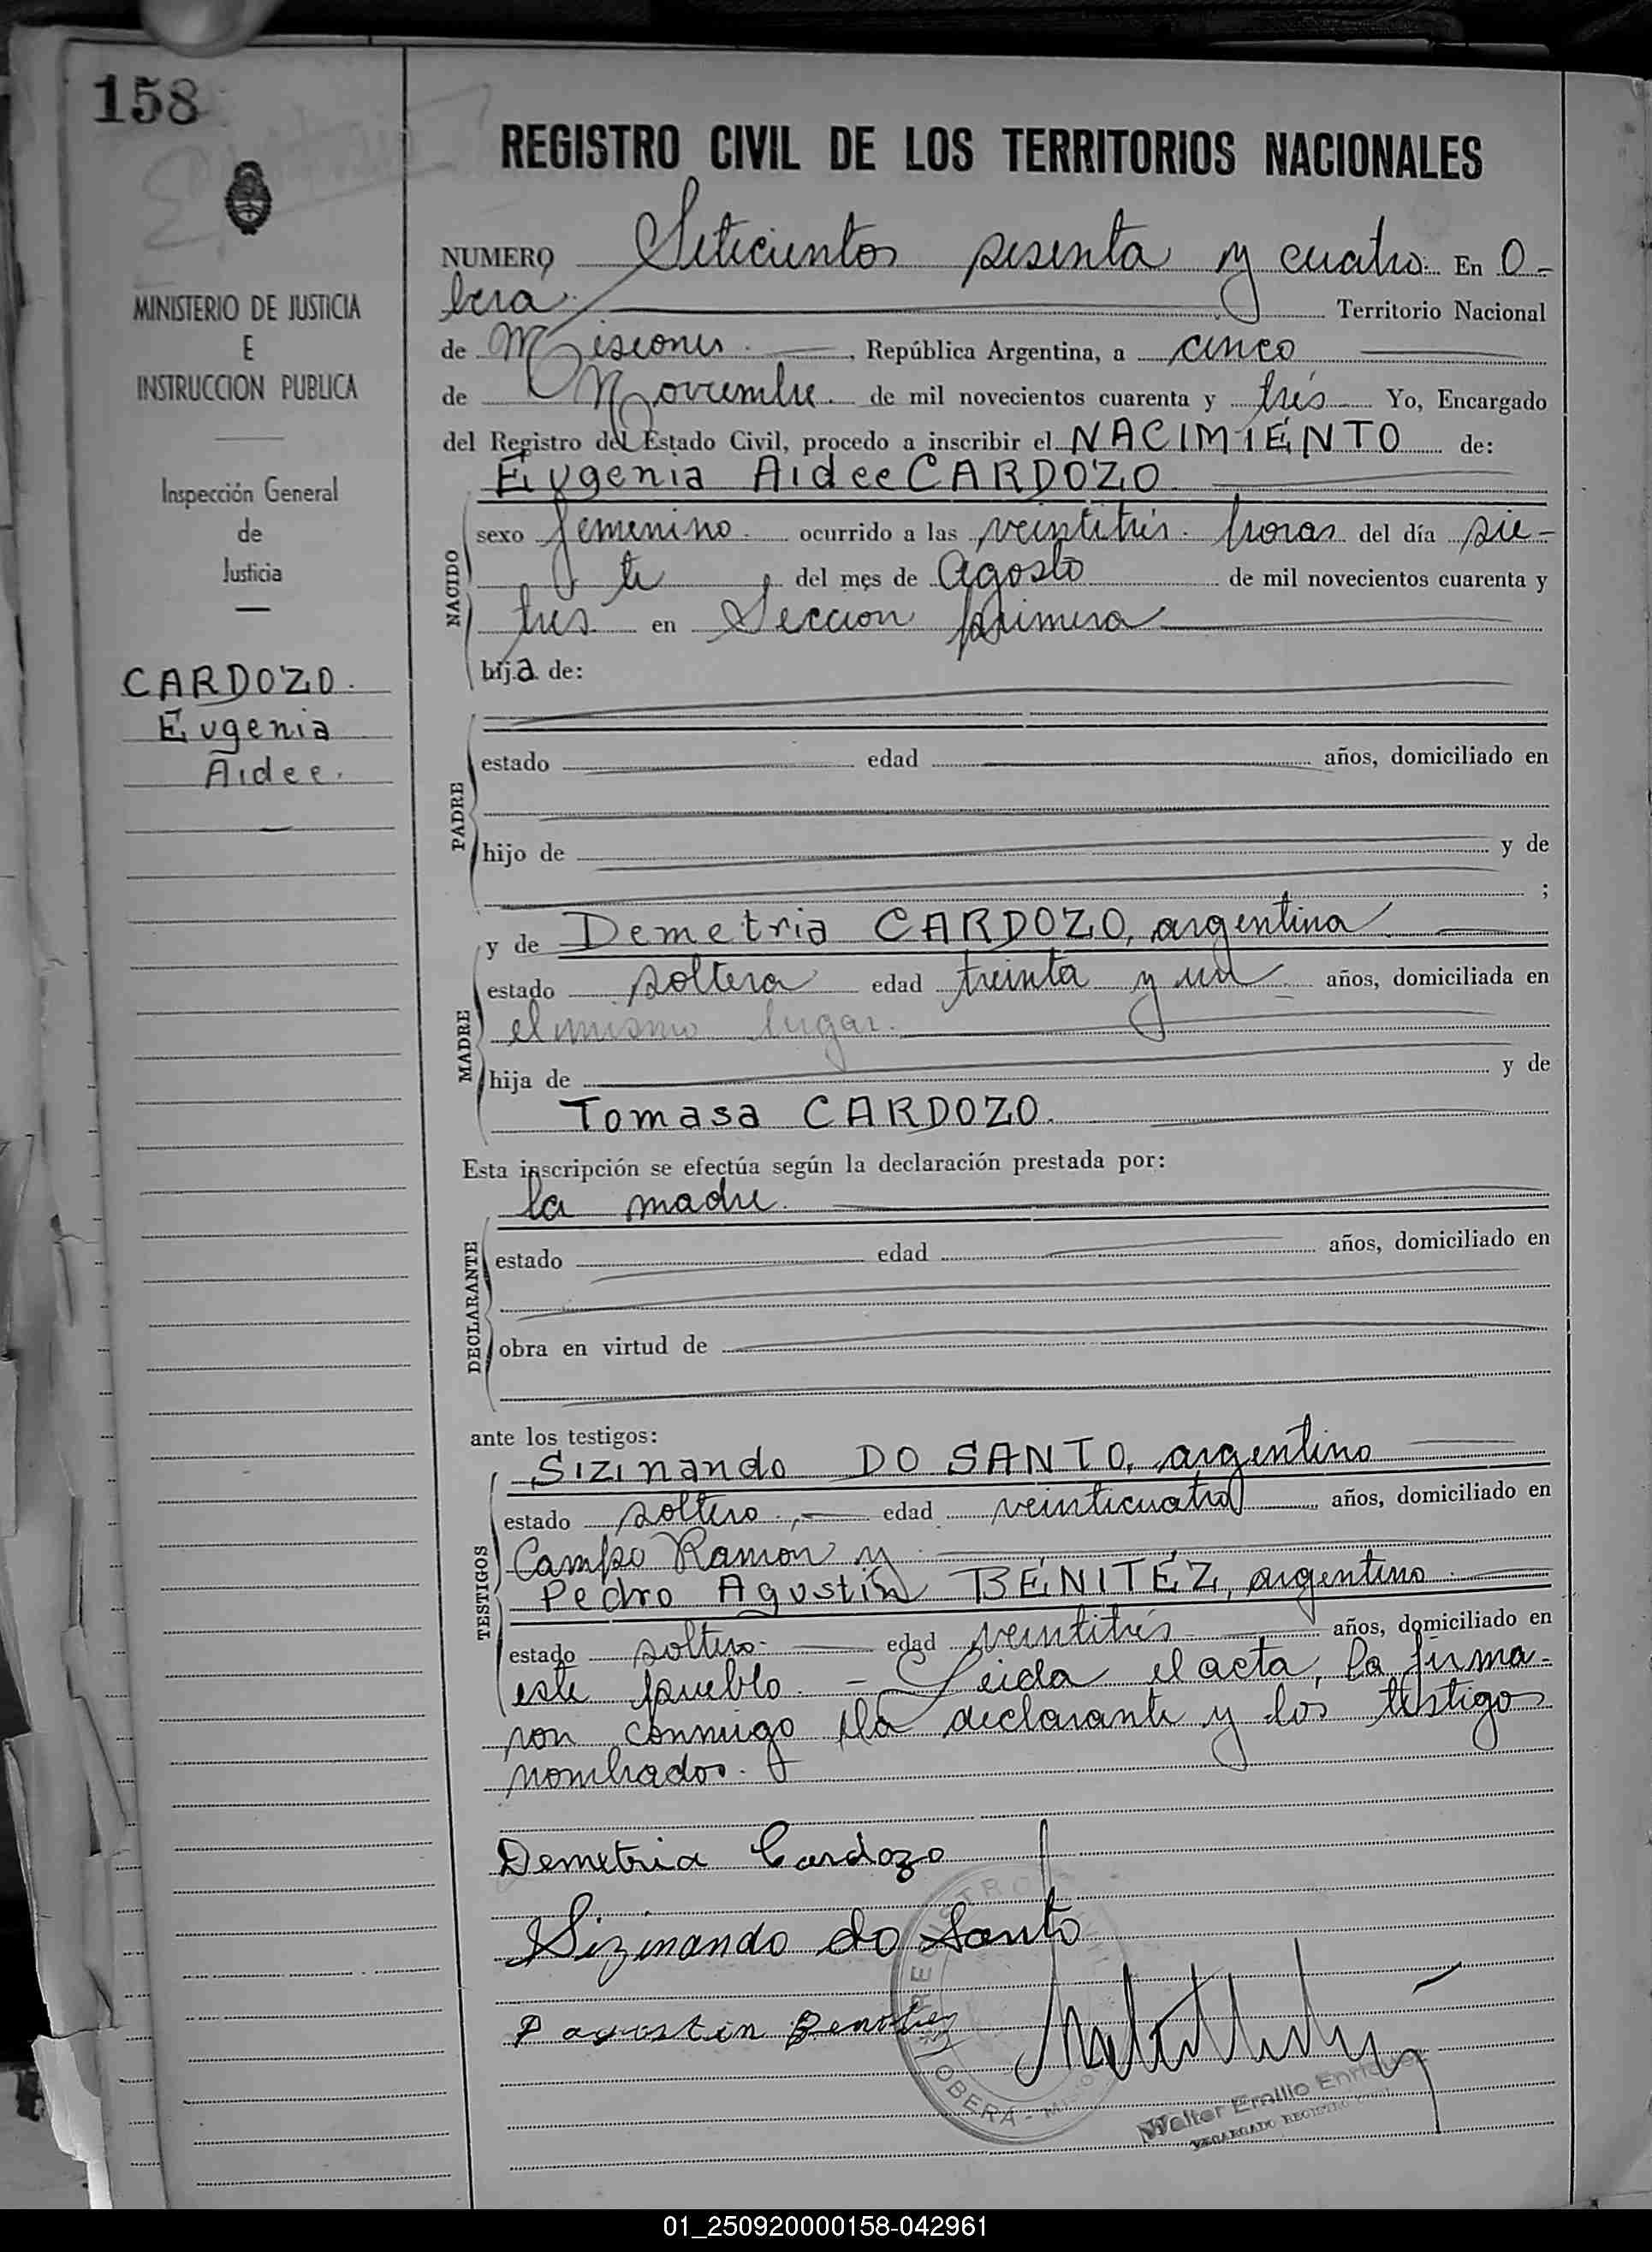 158
REGISTRO CIVIL DE LOS TERRITORIOS NACIONALES
MINISTERIO DE JUSTICIA
E
INSTRUCCION PUBLICA
Inspección General
de
Justicia
CARDOZO.
Eugenia
Aidee.
NUMERO Seticientos sesenta y cuatro. En O-
berá. Territorio Nacional
de Misiones. República Argentina, a cinco
de Noviembre. de mil novecientos cuarenta y trés Yo, Encargado
del Registro del Estado Civil, procedo a inscribir el NACIMIENTO de:
Eugenia Aidee CARDOZO.
NACIDO
sexo femenino. ocurrido a las veintitrés. horas del día sie-
te, del mes de Agosto de mil novecientos cuarenta y
tres en Seccion primera
hija de:
PADRE
estado edad años, domiciliado en
hijo de y de
;
MADRE
y de Demetria CARDOZO, argentina
estado soltera edad treinta y un años, domiciliada en
el mismo lugar.
hija de y de
Tomasa CARDOZO.
Esta inscripción se efectúa según la declaración prestada por:
la madre.
DECLARANTE
estado edad años, domiciliado en
obra en virtud de
ante los testigos:
TESTIGOS
Sizinando DO SANTO, argentino
estado soltero. edad veinticuatro años, domiciliado en
Campo Ramon y
Pedro Agustín BENITEZ, argentino.
estado soltero. edad veintitrés años, domiciliado en
este pueblo. - Leida el acta, la firma-
ron conmigo la declarante y los testigos
nombrados.
Demetria Cardozo
Sizinando do Santo
P agustin Benitez
REGISTRO
OBERÁ - MISIO
Walter Emilio Enriquez
ENCARGADO REGISTRO CIVIL
01_250920000158-042961